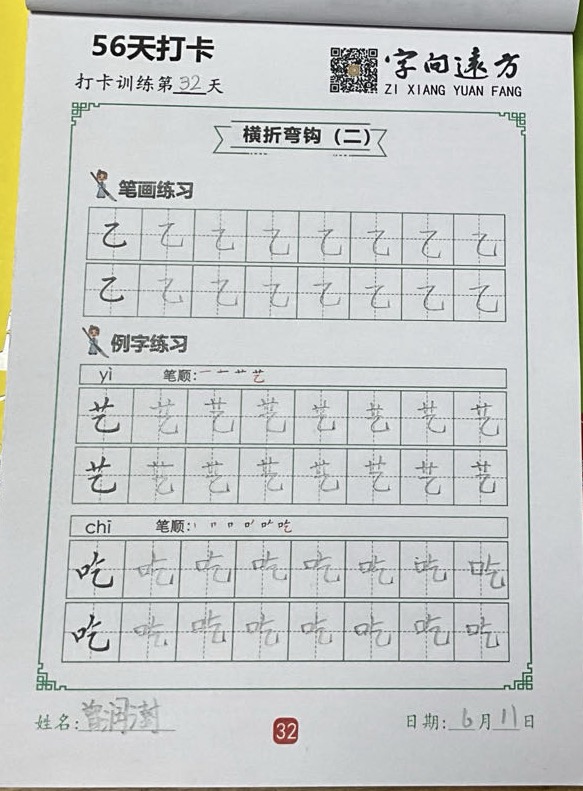 56天打卡
打卡训练第32天
字向远方
ZI XIANG YUAN FANG
横折弯钩（二）
笔画练习
乙乙乙乙乙乙乙乙
乙乙乙乙乙乙乙乙
例字练习
yì 笔顺：一 十 艹 艺
艺艺艺艺艺艺艺艺
艺艺艺艺艺艺艺艺
chī 笔顺：丨 口 口 口丿 吃
吃吃吃吃吃吃吃吃
吃吃吃吃吃吃吃吃
姓名：曾润澍
32
日期：6月11日